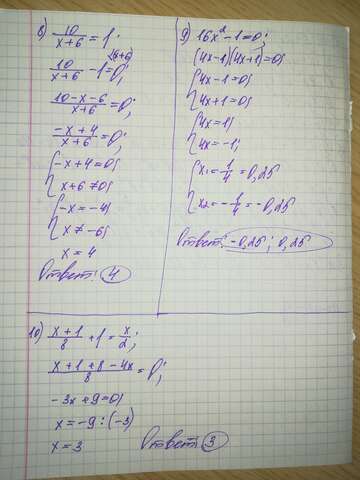 8) 10/(x+6) = 1;
10/(x+6) - 1 = 0; \(x+6)
(10-x-6)/(x+6) = 0;
(-x+4)/(x+6) = 0;
{ -x+4=0;
x+6≠0;
{ -x=-4;
x≠-6;
x=4
Ответ: 4
9) 16x²-1=0;
(4x-1)(4x+1)=0;
{ 4x-1=0;
4x+1=0;
{ 4x=1;
4x=-1;
{ x₁=1/4=0,25
x₂=-1/4=-0,25
Ответ: -0,25; 0,25
10) (x+1)/8 + 1 = x/2;
(x+1+8-4x)/8 = 0;
-3x+9=0;
x=-9:(-3)
x=3
Ответ: 3